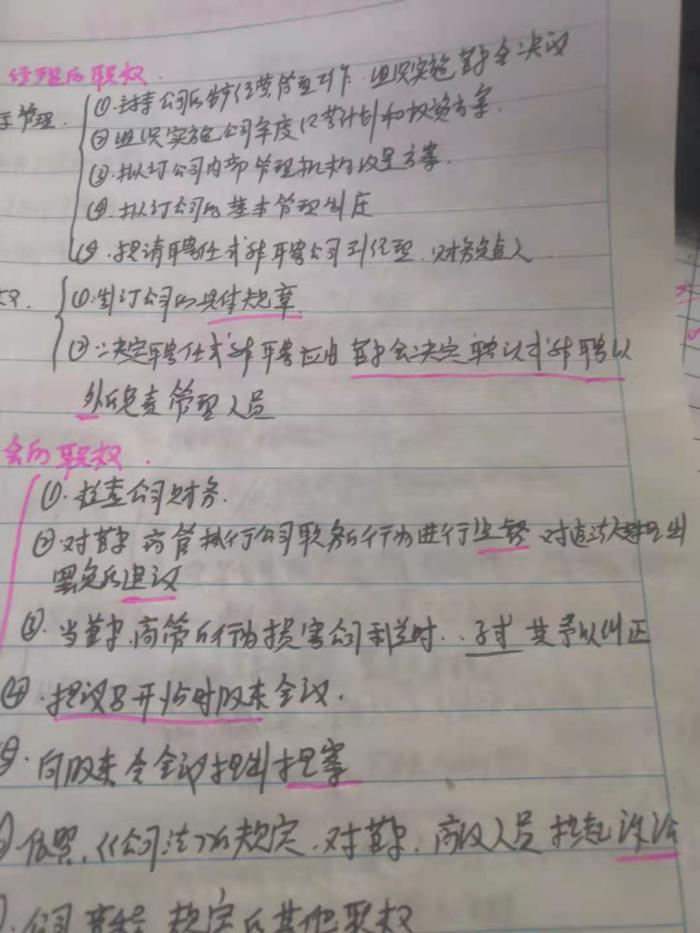 经理的职权.
管理.
①.主持公司的生产经营管理工作. 组织实施董事会决议
②组织实施公司年度经营计划和投资方案.
③.拟订公司内部管理机构设置方案.
④.拟订公司的基本管理制度
⑤.提请聘任或解聘公司副经理.财务负责人
①.制订公司的具体规章.
②.决定聘任或解聘应由董事会决定聘认或解聘以
外的负责管理人员
会的职权.
①.检查公司财务.
②.对董事 高管执行公司职务的行为进行监督 对违法人提出
罢免的建议
③.当董事.高管的行为损害公司利益时..要求其予以纠正
④.提议召开临时股东会议.
⑤.向股东会会议提出提案
依照.《公司法》的规定.对董事.高级人员 提起诉讼
.公司章程 规定的其他职权